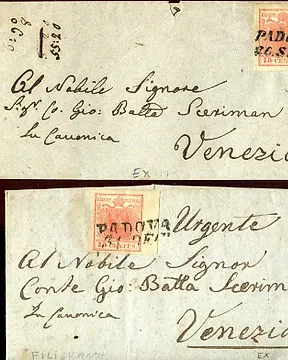 55:20
PADO
26.S
15 CENT
Al Nobile Signore
Sigr. Co. Gio: Batta Sceriman
In Canonica
Venezia
EX
PADOVA
Urgente
Al Nobile Signor
Conte Gio: Batta Scerim
In Canonica
Venezia
FILIGRANA
EX